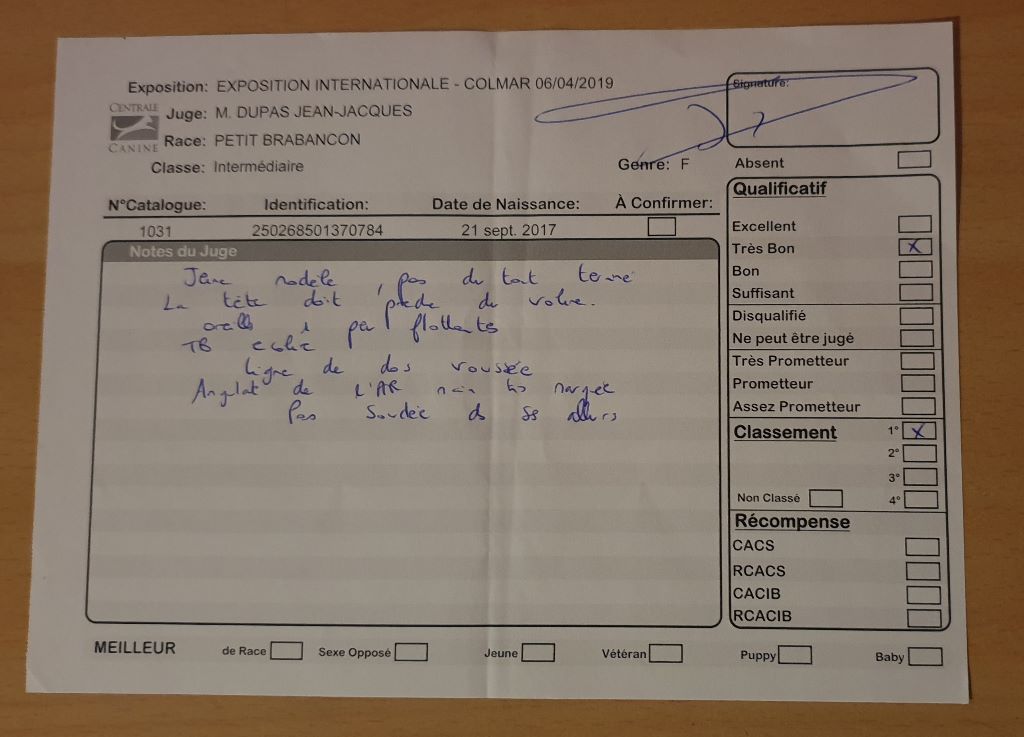 Exposition: EXPOSITION INTERNATIONALE - COLMAR 06/04/2019
Signature:
CENTRALE CANINE
Juge: M. DUPAS JEAN-JACQUES
Race: PETIT BRABANCON
Classe: Intermédiaire
Genre: F
Absent
N°Catalogue: Identification: Date de Naissance: À Confirmer:
1031 250268501370784 21 sept. 2017
Notes du Juge
modèle, pas du tout
La tête doit du volume.
flottantes
TB
Ligne de dos voussée
Angulat de l'AR
Pas ds ss
Qualificatif
Excellent
Très Bon X
Bon
Suffisant
Disqualifié
Ne peut être jugé
Très Prometteur
Prometteur
Assez Prometteur
Classement 1° X
2°
3°
Non Classé 4°
Récompense
CACS
RCACS
CACIB
RCACIB
MEILLEUR de Race Sexe Opposé Jeune Vétéran Puppy Baby